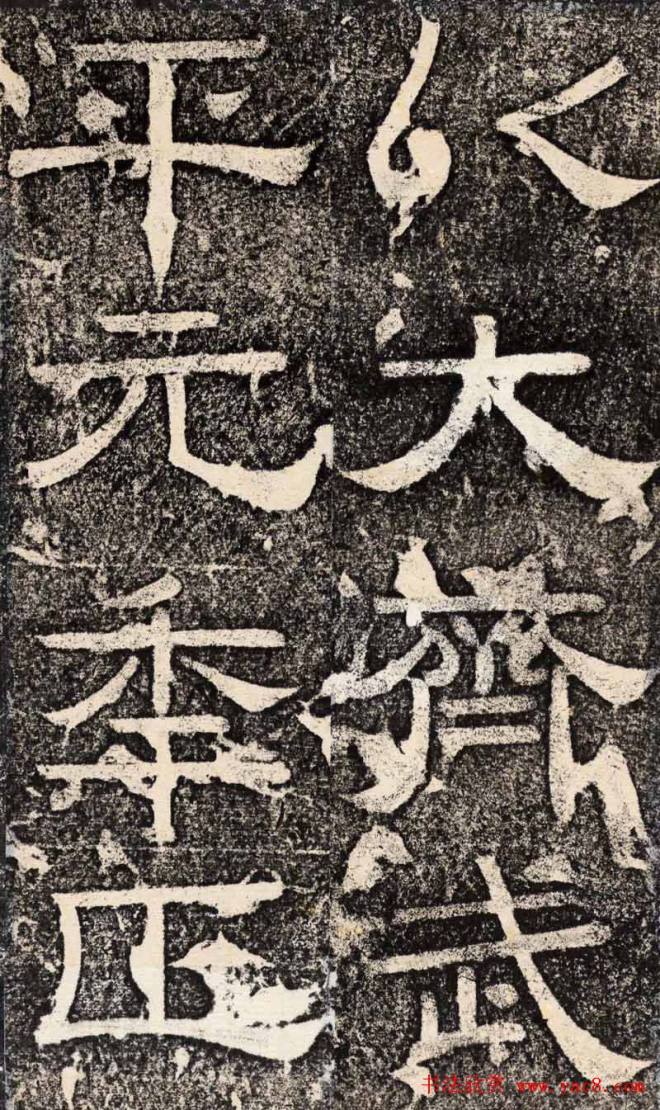 以大齊武
平元秊正
书法欣赏 www.yac8.com